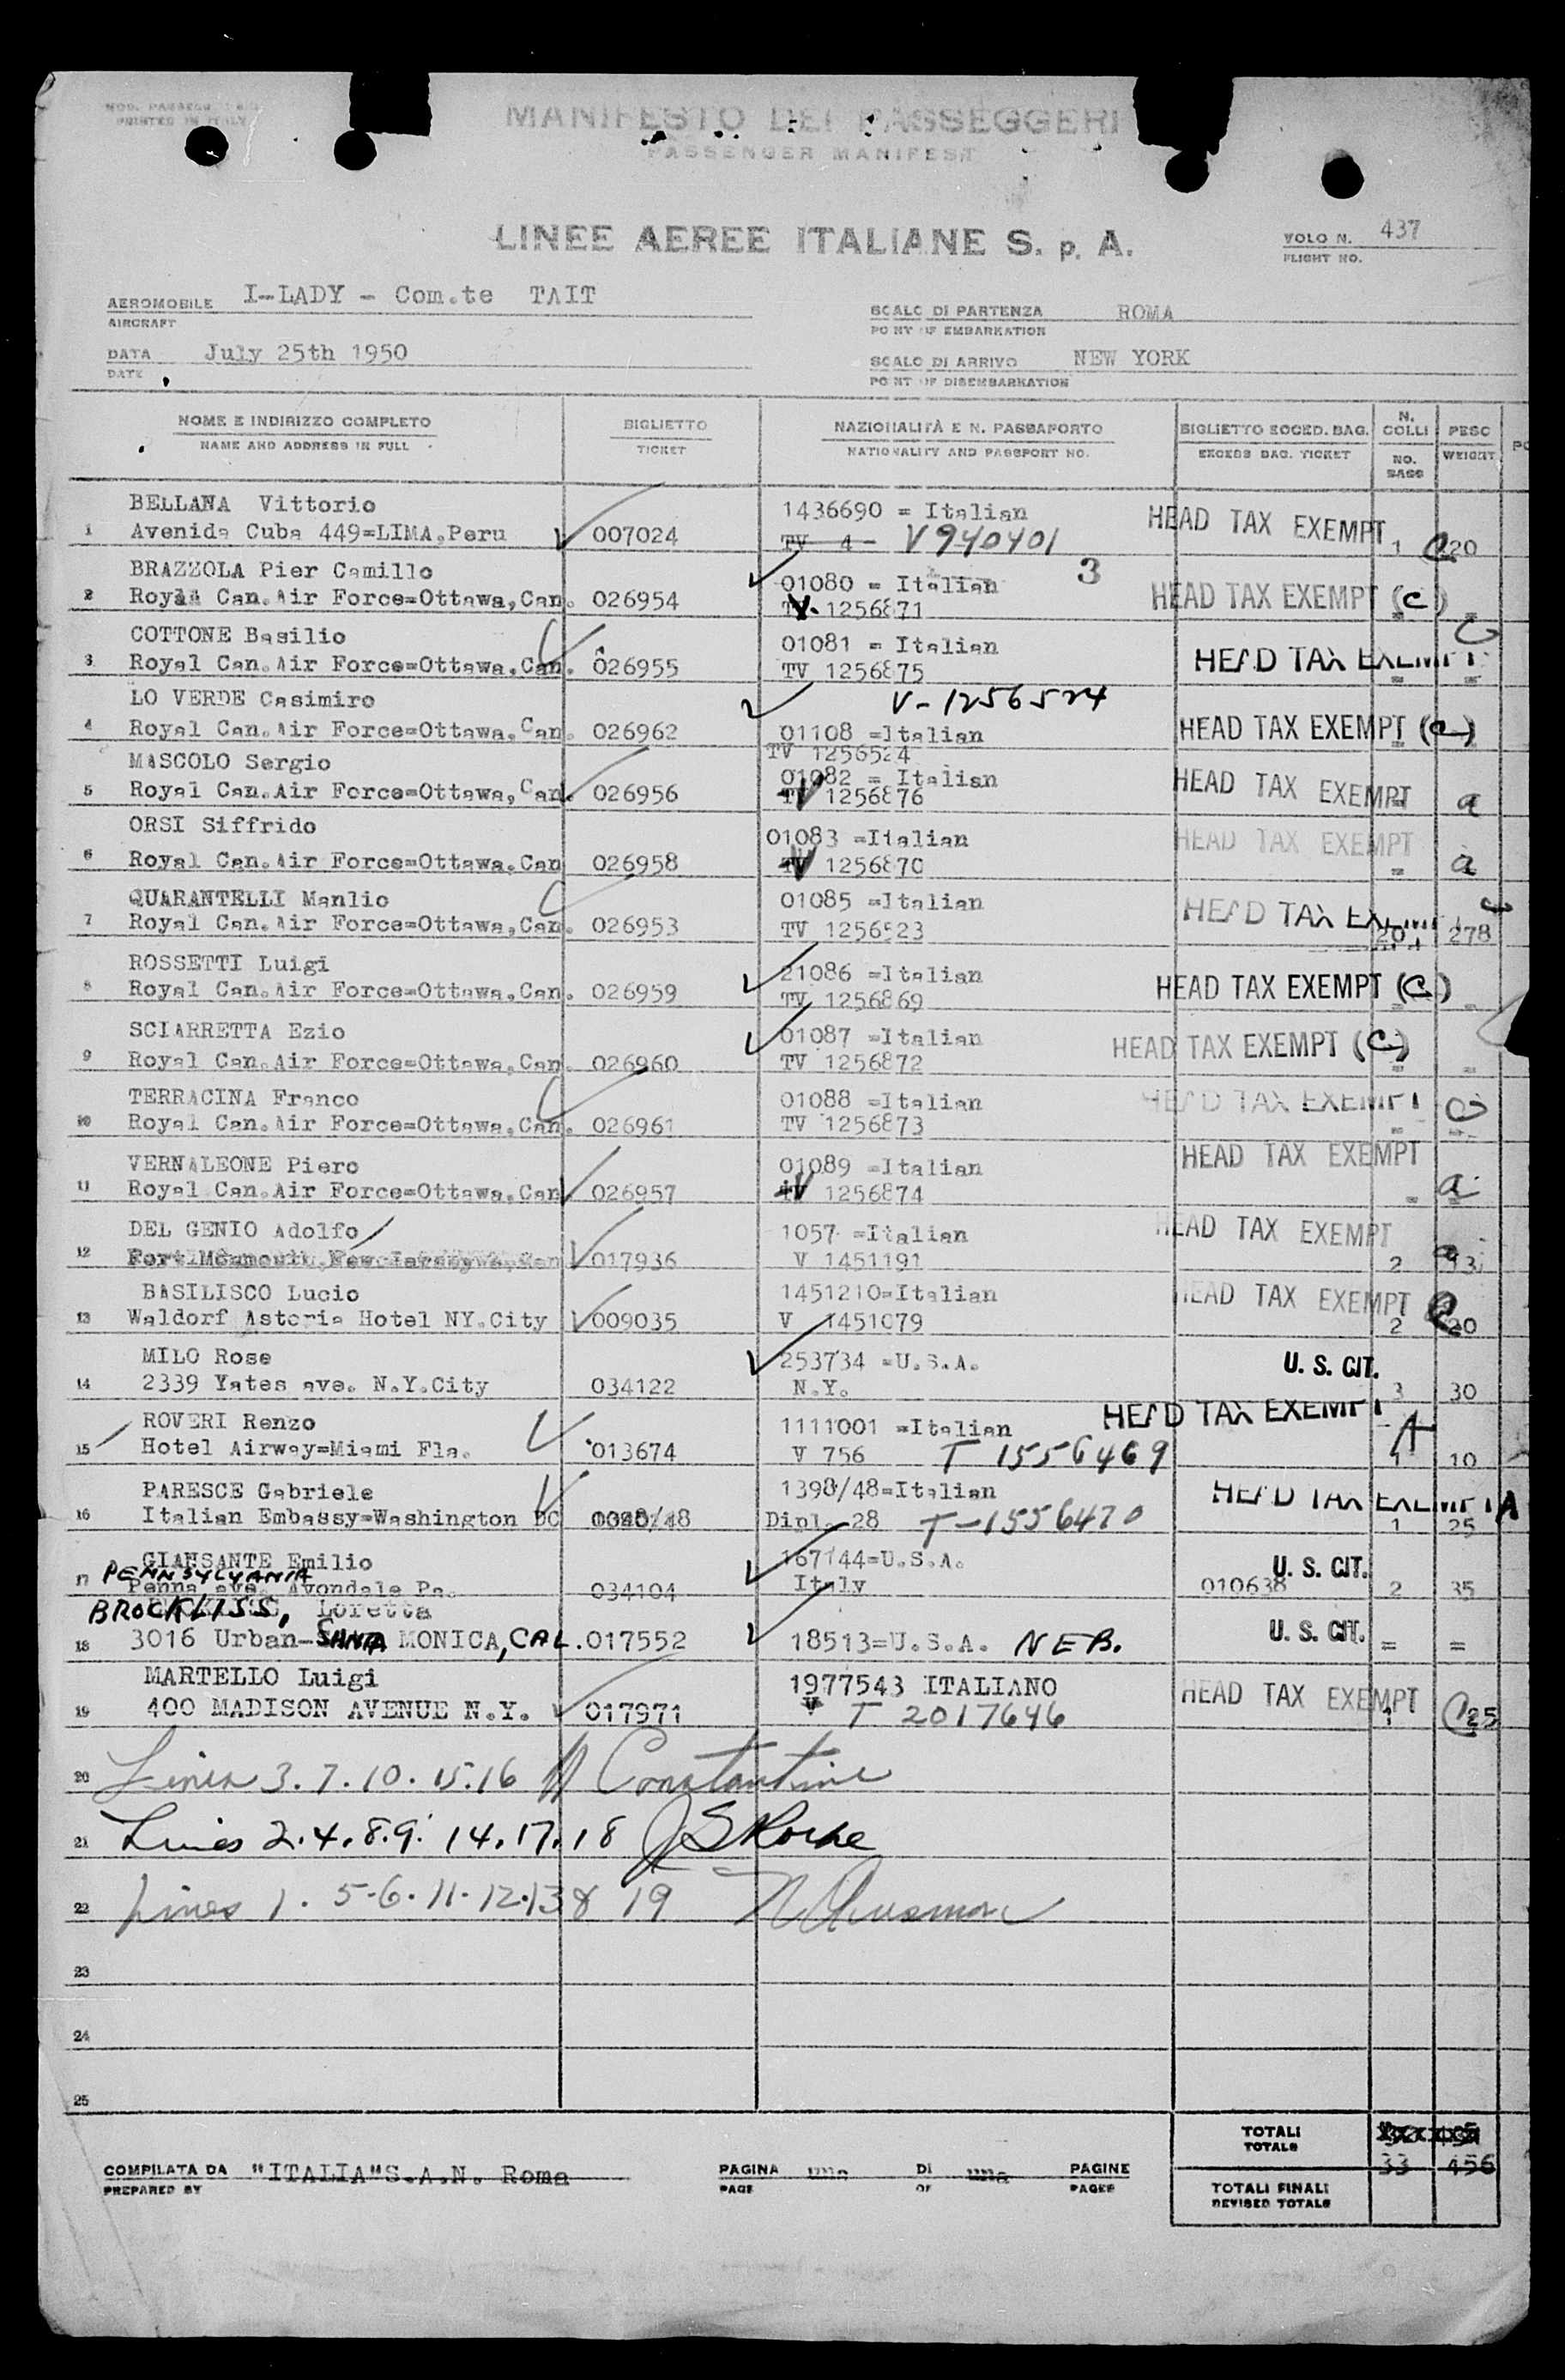 PRINTED IN ITALY
MANIFESTO DEI PASSEGGERI
PASSENGER MANIFEST
LINEE AEREE ITALIANE S. p. A.
VOLO N. 437
FLIGHT NO.
AEROMOBILE I-LADY - Com.te TAIT
AIRCRAFT
SCALO DI PARTENZA ROMA
POINT OF EMBARKATION
DATA July 25th 1950
DATE
SCALO DI ARRIVO NEW YORK
POINT OF DISEMBARKATION
NOME E INDIRIZZO COMPLETO BIGLIETTO NAZIONALITÀ E N. PASSAPORTO BIGLIETTO ECCED. BAG. N. COLLI PESO
NAME AND ADDRESS IN FULL TICKET NATIONALITY AND PASSPORT NO. EXCESS BAG. TICKET NO. BAGS WEIGHT
BELLANA Vittorio 1436690 = Italian
1 Avenida Cuba 449=LIMA,Peru 007024 TV 4 - V940401 HEAD TAX EXEMPT 1 20
BRAZZOLA Pier Camillo 01080 = Italian 3
2 Royal Can.Air Force=Ottawa,Can. 026954 1256871 HEAD TAX EXEMPT (C)
COTTONE Basilio 01081 = Italian
3 Royal Can.Air Force=Ottawa.Can. 026955 TV 1256875 HEAD TAX EXEMPT
LO VERDE Casimiro V-1256524
4 Royal Can.Air Force=Ottawa.Can. 026962 01108 =Italian HEAD TAX EXEMPT (C)
TV 1256524
MASCOLO Sergio 01082 = Italian
5 Royal Can.Air Force=Ottawa,Can. 026956 V 1256876 HEAD TAX EXEMPT a
ORSI Siffrido 01083 =Italian
6 Royal Can.Air Force=Ottawa.Can 026958 V 1256870 HEAD TAX EXEMPT a
QUARANTELLI Manlio 01085 =Italian
7 Royal Can.Air Force=Ottawa,Can. 026953 TV 1256523 HEAD TAX EXEMPT 20 278
ROSSETTI Luigi 21086 =Italian
8 Royal Can.Air Force=Ottawa.Can. 026959 TV 1256869 HEAD TAX EXEMPT (C)
SCIARRETTA Ezio 01087 =Italian
9 Royal Can.Air Force=Ottawa,Can. 026960 TV 1256872 HEAD TAX EXEMPT (C)
TERRACINA Franco 01088 =Italian
10 Royal Can.Air Force=Ottawa.Can. 026961 TV 1256873 HEAD TAX EXEMPT
VERNALEONE Piero 01089 =Italian
11 Royal Can.Air Force=Ottawa.Can 026957 V 1256874 HEAD TAX EXEMPT a
DEL GENIO Adolfo 1057 =Italian
12 017936 V 1451191 HEAD TAX EXEMPT 2
BASILISCO Lucio 1451210=Italian
13 Waldorf Astoria Hotel NY.City 009035 V 1451079 HEAD TAX EXEMPT 2 20
MILO Rose 253734 =U.S.A. U. S. CIT.
14 2339 Yates ave. N.Y.City 034122 N.Y. 3 30
ROVERI Renzo 1111001 =Italian HEAD TAX EXEMPT
15 Hotel Airway=Miami Fla. 013674 V 756 T 1556469 A 1 10
PARESCE Gabriele 1398/48=Italian HEAD TAX EXEMPT A
16 Italian Embassy=Washington DC Dipl. 28 T-1556470 1 25
GIANSANTE Emilio 167144=U.S.A. U. S. CIT.
PENNSYLVANIA
17 Penna ave. Avondale Pa. 034104 Italy 010638 2 35
BROCKLISS, Loretta
18 3016 Urban-SANTA MONICA, CAL. 017552 18513=U.S.A. NEB. U. S. CIT. = =
MARTELLO Luigi 1977543 ITALIANO
19 400 MADISON AVENUE N.Y. 017971 T 2017646 HEAD TAX EXEMPT 1 25
20 Lines 3. 7. 10. 15. 16 Constantine
21 Lines 2. 4. 8. 9. 14. 17. 18
22 Lines 1. 5-6. 11. 12. 13 & 19
23
24
25
TOTALI
TOTALS
33 456
COMPILATA DA "ITALIA"S.A.N. Roma PAGINA una DI una PAGINE
PREPARED BY PAGE OF PAGES
TOTALI FINALI
REVISED TOTALS